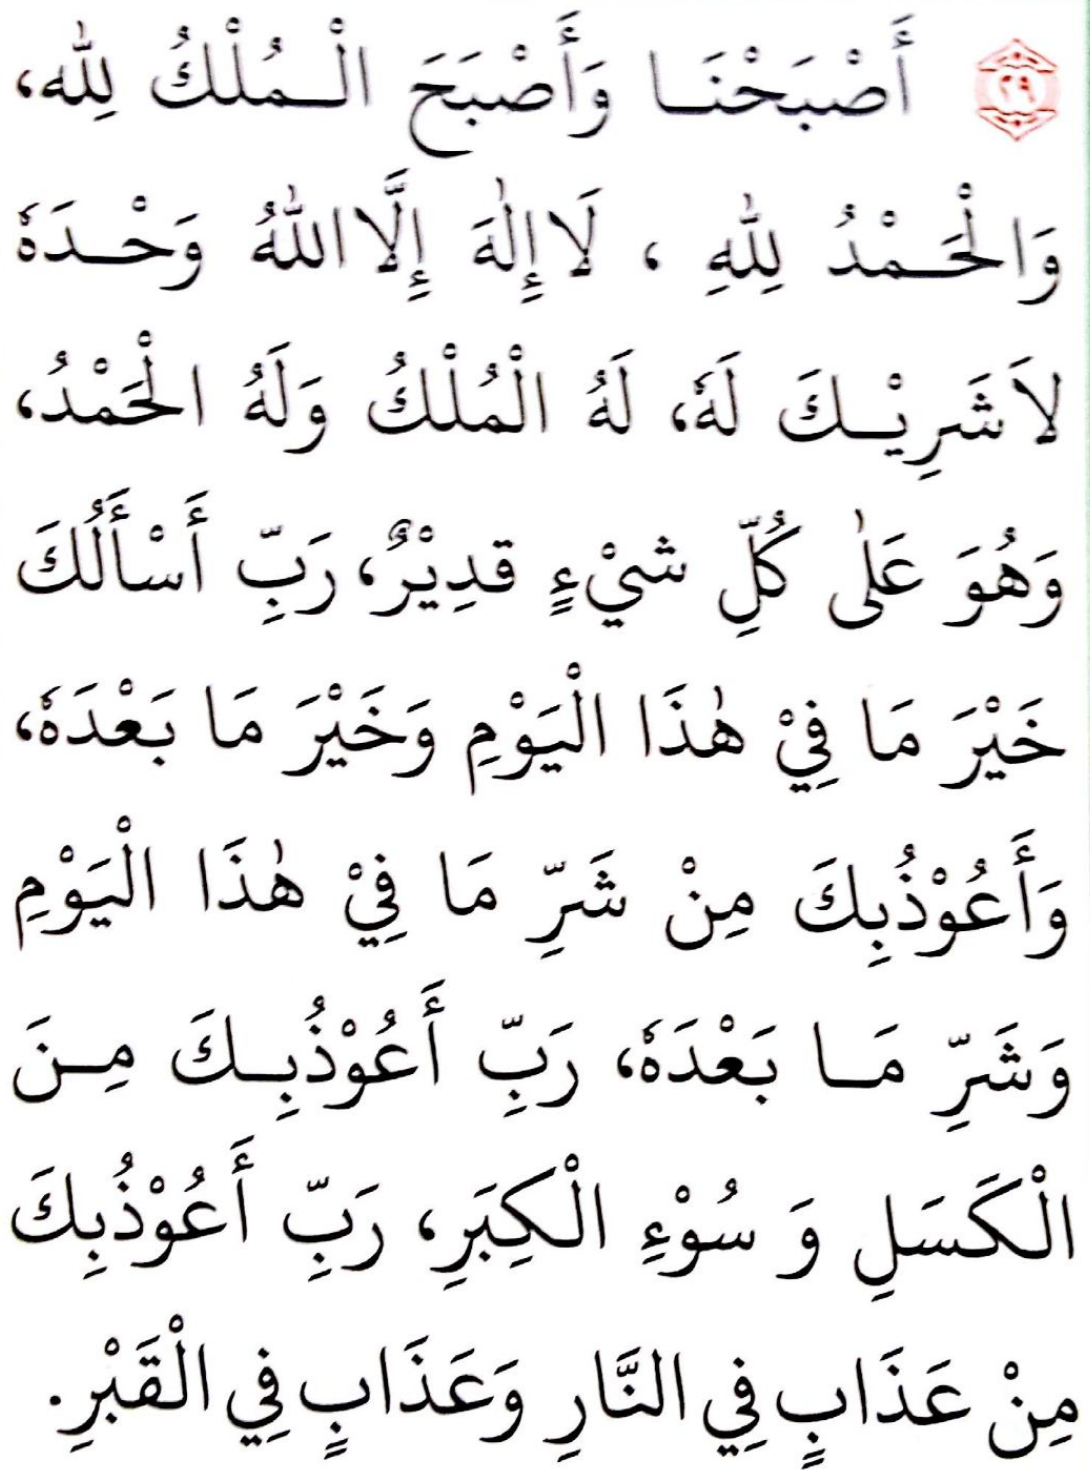 ٢٩ أَصْبَحْنَا وَأَصْبَحَ الْمُلْكُ لِلّٰه،
وَالْحَمْدُ لِلّٰهِ ، لَا إِلٰهَ إِلَّا اللّٰهُ وَحْدَهٗ
لاَ شَرِيْكَ لَهٗ، لَهُ الْمُلْكُ وَلَهُ الْحَمْدُ،
وَهُوَ عَلٰى كُلِّ شيْءٍ قدِيْرٌ، رَبِّ أَسْأَلُكَ
خَيْرَ مَا فِيْ هٰذَا الْيَوْمِ وَخَيْرَ مَا بَعْدَهٗ،
وَأَعُوْذُبِكَ مِنْ شَرِّ مَا فِيْ هٰذَا الْيَوْمِ
وَشَرِّ مَا بَعْدَهٗ، رَبِّ أَعُوْذُبِكَ مِنَ
الْكَسَلِ وَ سُوْءِ الْكِبَرِ، رَبِّ أَعُوْذُبِكَ
مِنْ عَذَابٍ فِي النَّارِ وَعَذَابٍ فِي الْقَبْرِ.